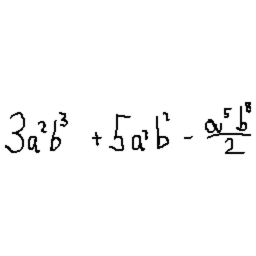 3a²b³ + 5a²b² - a⁵b⁸/2